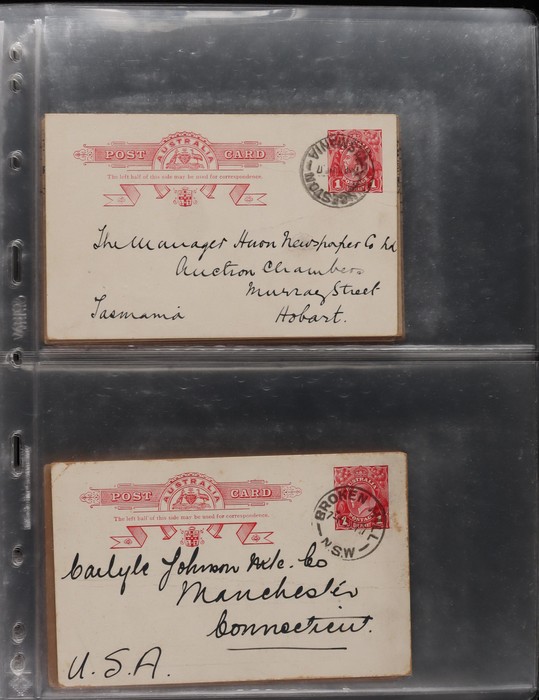 AUSTRALIA
POST CARD
The left half of this side may be used for correspondence.
1 1
The Manager Huon Newspaper Co Ld
Auction Chambers
Murray Street
Tasmania Hobart.
AUSTRALIA
POST CARD
The left half of this side may be used for correspondence.
BROKEN HILL
N.S.W
Carlyle Johnson Co
Manchester
Connecticut.
U.S.A.